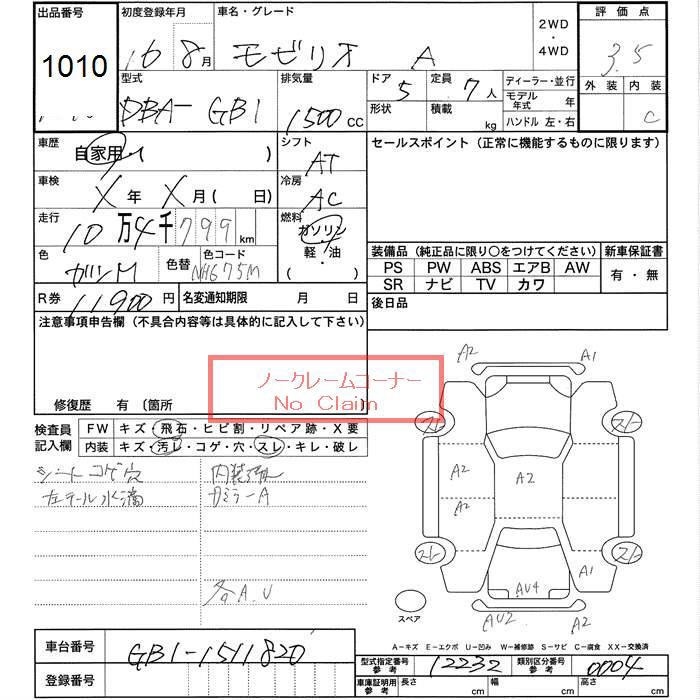 出品番号
1010
初度登録年月
16 8月
車名・グレード
モビリオ A
2WD
・
4WD
評価点
3.5
外装 内装
C
型式
DBA-GB1
排気量
1500 CC
ドア 5
形状
定員 7人
積載 kg
ディーラー・並行
モデル年式 年
ハンドル 左・右
車歴
自家用 ( )
シフト
AT
セールスポイント (正常に機能するものに限ります)
車検
X年 X月 ( 日)
冷房
AC
走行
10万4千799km
燃料
ガソリン
軽・油
( )
色
ガンM
色替
色コード
NH675M
装備品 (純正品に限り〇をつけてください)
新車保証書
PS PW ABS エアB AW
SR ナビ TV カワ
有・無
R券 11900円
名変通知期限 月 日
後日品
注意事項申告欄 (不具合内容等は具体的に記入して下さい)
ノークレームコーナー
No Claim
修復歴 有 〔箇所
検査員
記入欄
FW キズ・飛石・ヒビ割・リペア跡・X要
内装 キズ・汚レ・コゲ・穴・スレ・キレ・破レ
シートコゲ穴
左テール水滴
各A.U
A2 A1
スレ スレ
A2 A2
A2
スレ スレ
A1
AU4
AU2 A2
スペア
A-キズ E-エクボ U-凹み W-補修跡 S-サビ C-腐食 XX-交換済
車台番号
GB1-1511820
登録番号
型式指定番号
参考
12232
類別区分番号
参考
0004
車庫証明用
参考
長さ cm 幅 cm 高さ cm